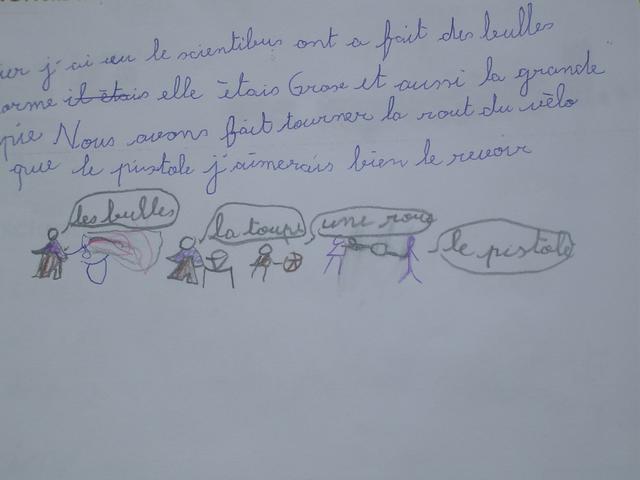 ier j'ai eu le scientibus ont a fait des bulles
orme il étais elle ètais Grose et aussi la grande
pie Nous avons fait tourner la rout du vèlo
que le pistole j'aimerais bien le revoir
les bulles
la toupi
une roue
le pistolè